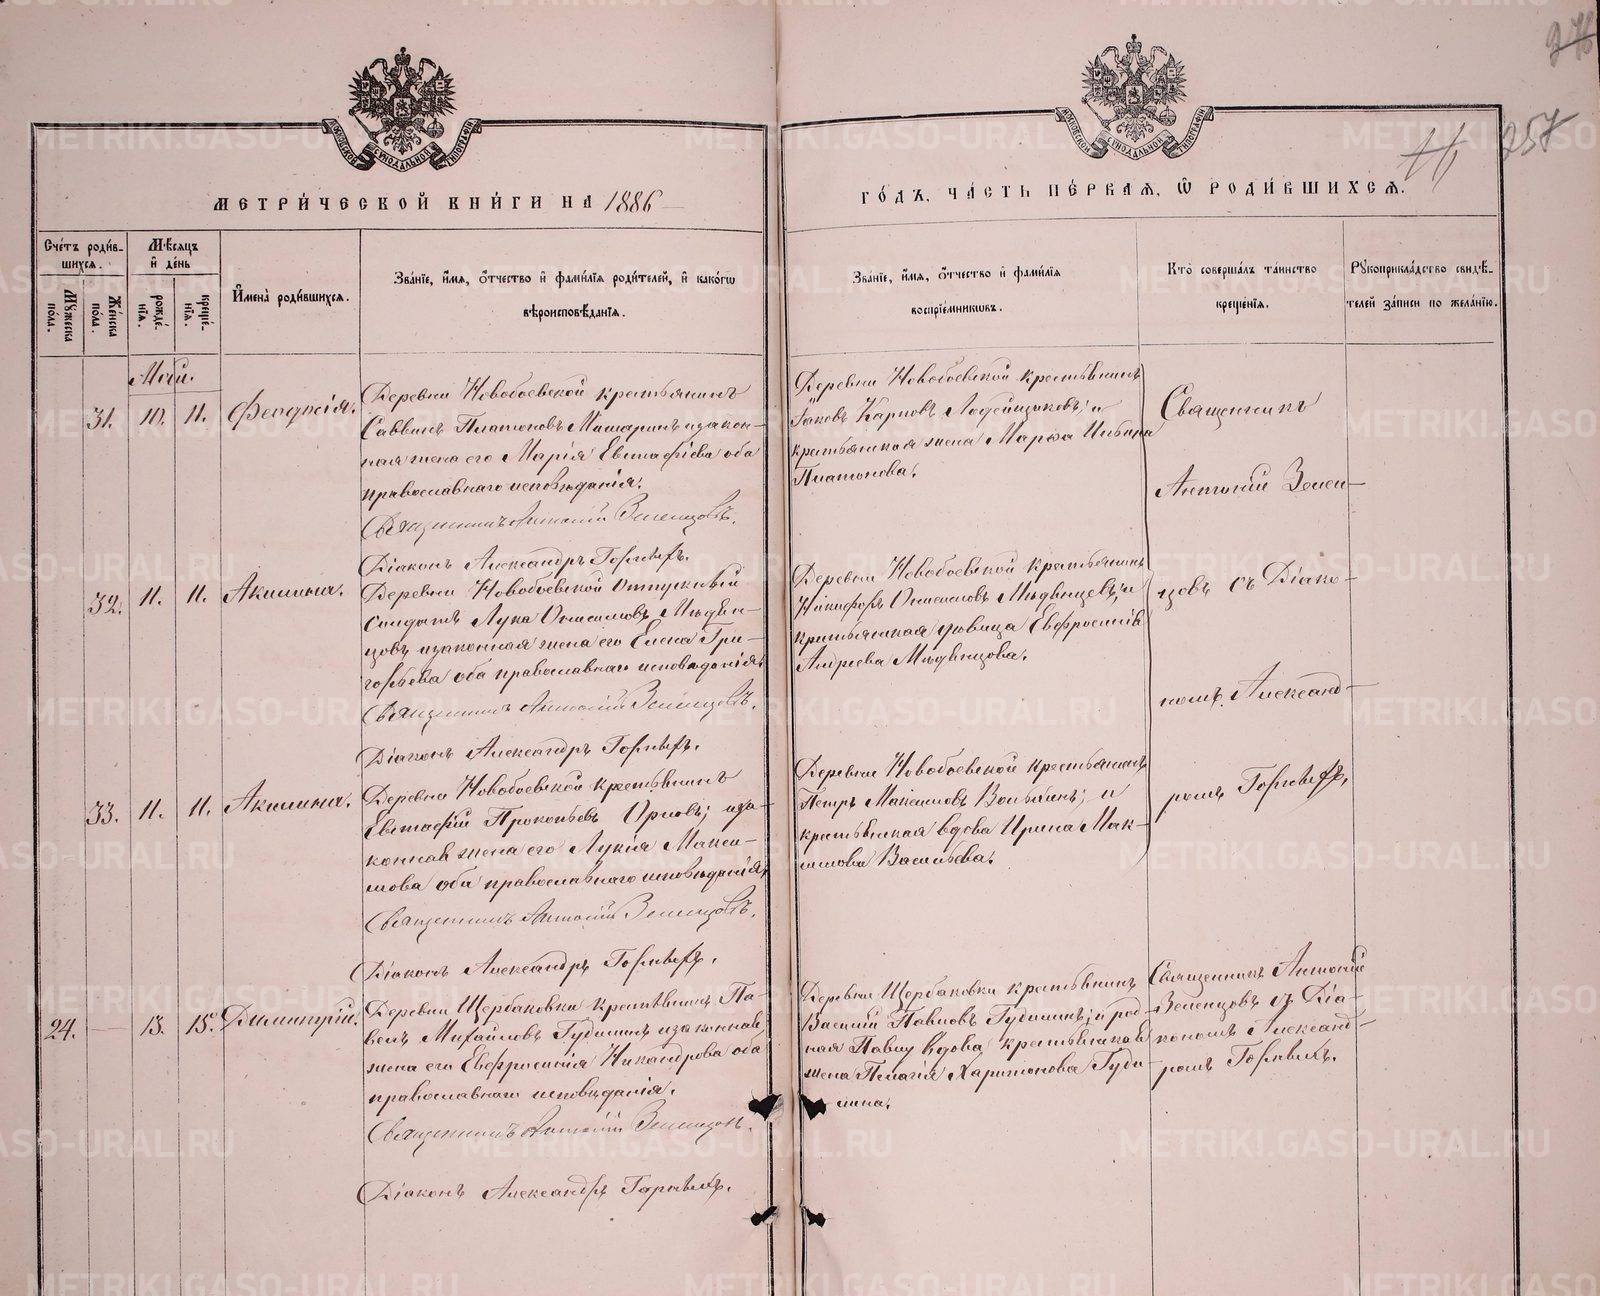 МЕТРИ́ЧЕСКОЙ КНИ́ГИ НА 1886
ГО́ДЪ, ЧА́СТЬ ПЕ́РВАѦ, Ѡ РОДИ́ВШИХСѦ.
257
Сче́тъ роди́в-
шихсѧ.
Мѣсѧцъ
и҆ де́нь
Мꙋ́жеска по́ла.
Же́нска по́ла.
рожде́-
нїѧ.
креще́-
нїѧ.
И҆мена̀ роди́вшихсѧ.
Зва́нїе, и҆́мѧ, ѻ҆́тчество и҆ фами́лїѧ роди́телей, и҆ како́гѡ
вѣроисповѣ́данїѧ.
Зва́нїе, и҆́мѧ, ѻ҆́тчество и҆ фами́лїѧ
воспрїе́мникѡвъ.
Кто̀ соверша́лъ та́инство
креще́нїѧ.
Рꙋкоприкла́дство свидѣ́-
телей за́писи по жела́нїю.
Май.
31. 10. 11. Феодосія.
Деревни Новобоевской крестьянинъ
Саввинъ Платоновъ изакон-
ная жена его Марія Евстафіева оба
православнаго исповѣданія.
Священникъ Антоній Зеленцовъ.
Діаконъ Александръ Горныхъ.
Деревни Новобоевской крестьянинъ
Іаковъ Карповъ и
крестьянская жена Марѳа
Платонова.
Священникъ
Антоній Зелен-
цовъ съ Діако-
номъ Александ-
ромъ Горныхъ.
32. 11. 11. Акилина.
Деревни Новобоевской Отпускный
Солдатъ Лука Онисимовъ Мѣдвѣн-
цовъ изаконная жена его Елена Гри-
горьева оба православнаго исповѣданія.
Священникъ Антоній Зеленцовъ.
Діаконъ Александръ Горныхъ.
Деревни Новобоевской крестьянинъ
Никифоръ Онисимовъ и
крестьянская Евфросинія
Андреева
33. 11. 11. Акилина.
Деревни Новобоевской крестьянинъ
Евстафій Прокопьевъ Орловъ; иза-
конная жена его Лукія Макси-
мова оба православнаго исповѣданія.
Священникъ Антоній Зеленцовъ.
Діаконъ Александръ Горныхъ.
Деревни Новобоевской крестьянинъ
Петръ Максимовъ и
крестьянская вдова Ирина Мак-
симова Васильева.
24. — 13. 15. Димитрій.
Деревни Щербаковки крестьянинъ Па-
велъ Михайловъ Гудилинъ изаконная
жена его Евфросинія Никандрова оба
православнаго исповѣданія.
Священникъ Антоній Зеленцовъ.
Діаконъ Александръ Горныхъ.
Деревни Щербаковки крестьянинъ
Василій Павловъ Гудилинъ; и род-
ная Павлу вдова, крестьянская
жена Пелагія Харитонова Гуди-
лина.
Священникъ Антоній
Зеленцовъ съ Діа-
кономъ Александ-
ромъ Горныхъ.
METRIKI.GASO-URAL.RU